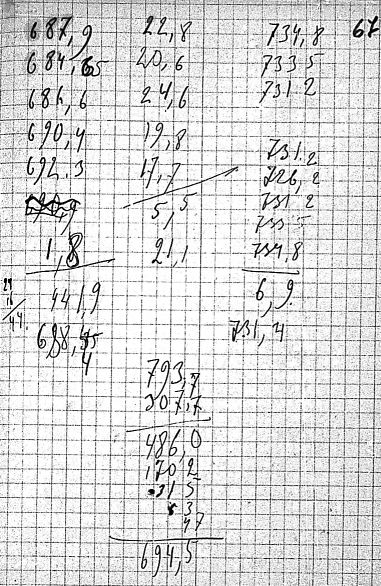 67
687,9 22,8 734,8
684,65 20,6 733 5
686,6 24,6 731 2
690,4 19,8 731,2
692.3 17,7 726,2
5,5 731 2
733 5
1,8 21,1 734,8
441,9 6,9
44.
688,45 731,4
4
793,7
307,7
486,0
170 2
31 5
3
47
694,5